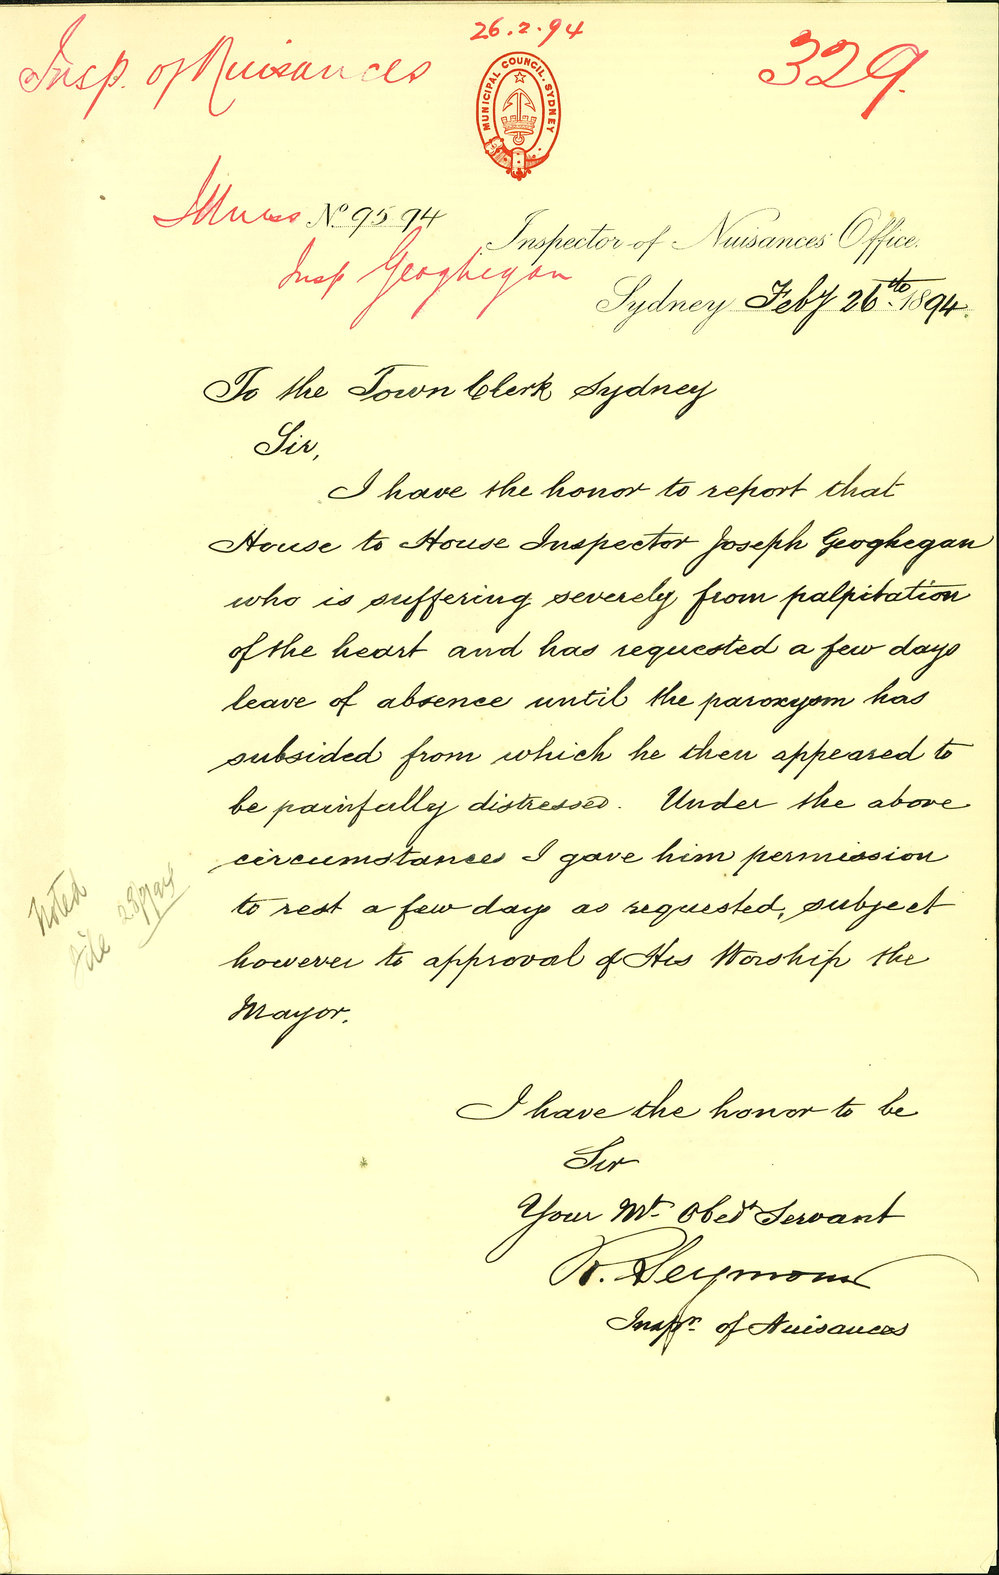 26.2.94
Insp. of Nuisances
329.
MUNICIPAL COUNCIL. SYDNEY
Illness No 95 94
Insp Geoghegan
Inspector of Nuisances Office.
Sydney Feby 26th 1894.
To the Town Clerk Sydney
Sir,
I have the honor to report that
House to House Inspector Joseph Geoghegan
who is suffering severely from palpitation
of the heart and has requested a few days
leave of absence until the paroxysm has
subsided from which he then appeared to
be painfully distressed. Under the above
circumstances I gave him permission
to rest a few days as requested, subject
however to approval of His Worship the
Mayor.
Noted
file
I have the honor to be
Sir
Your Mt Obedt Servant
R. Seymour
Inspr. of Nuisances